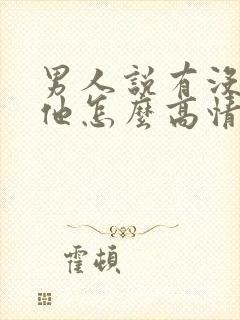 男人說有沒
他怎麼高情
霍頓